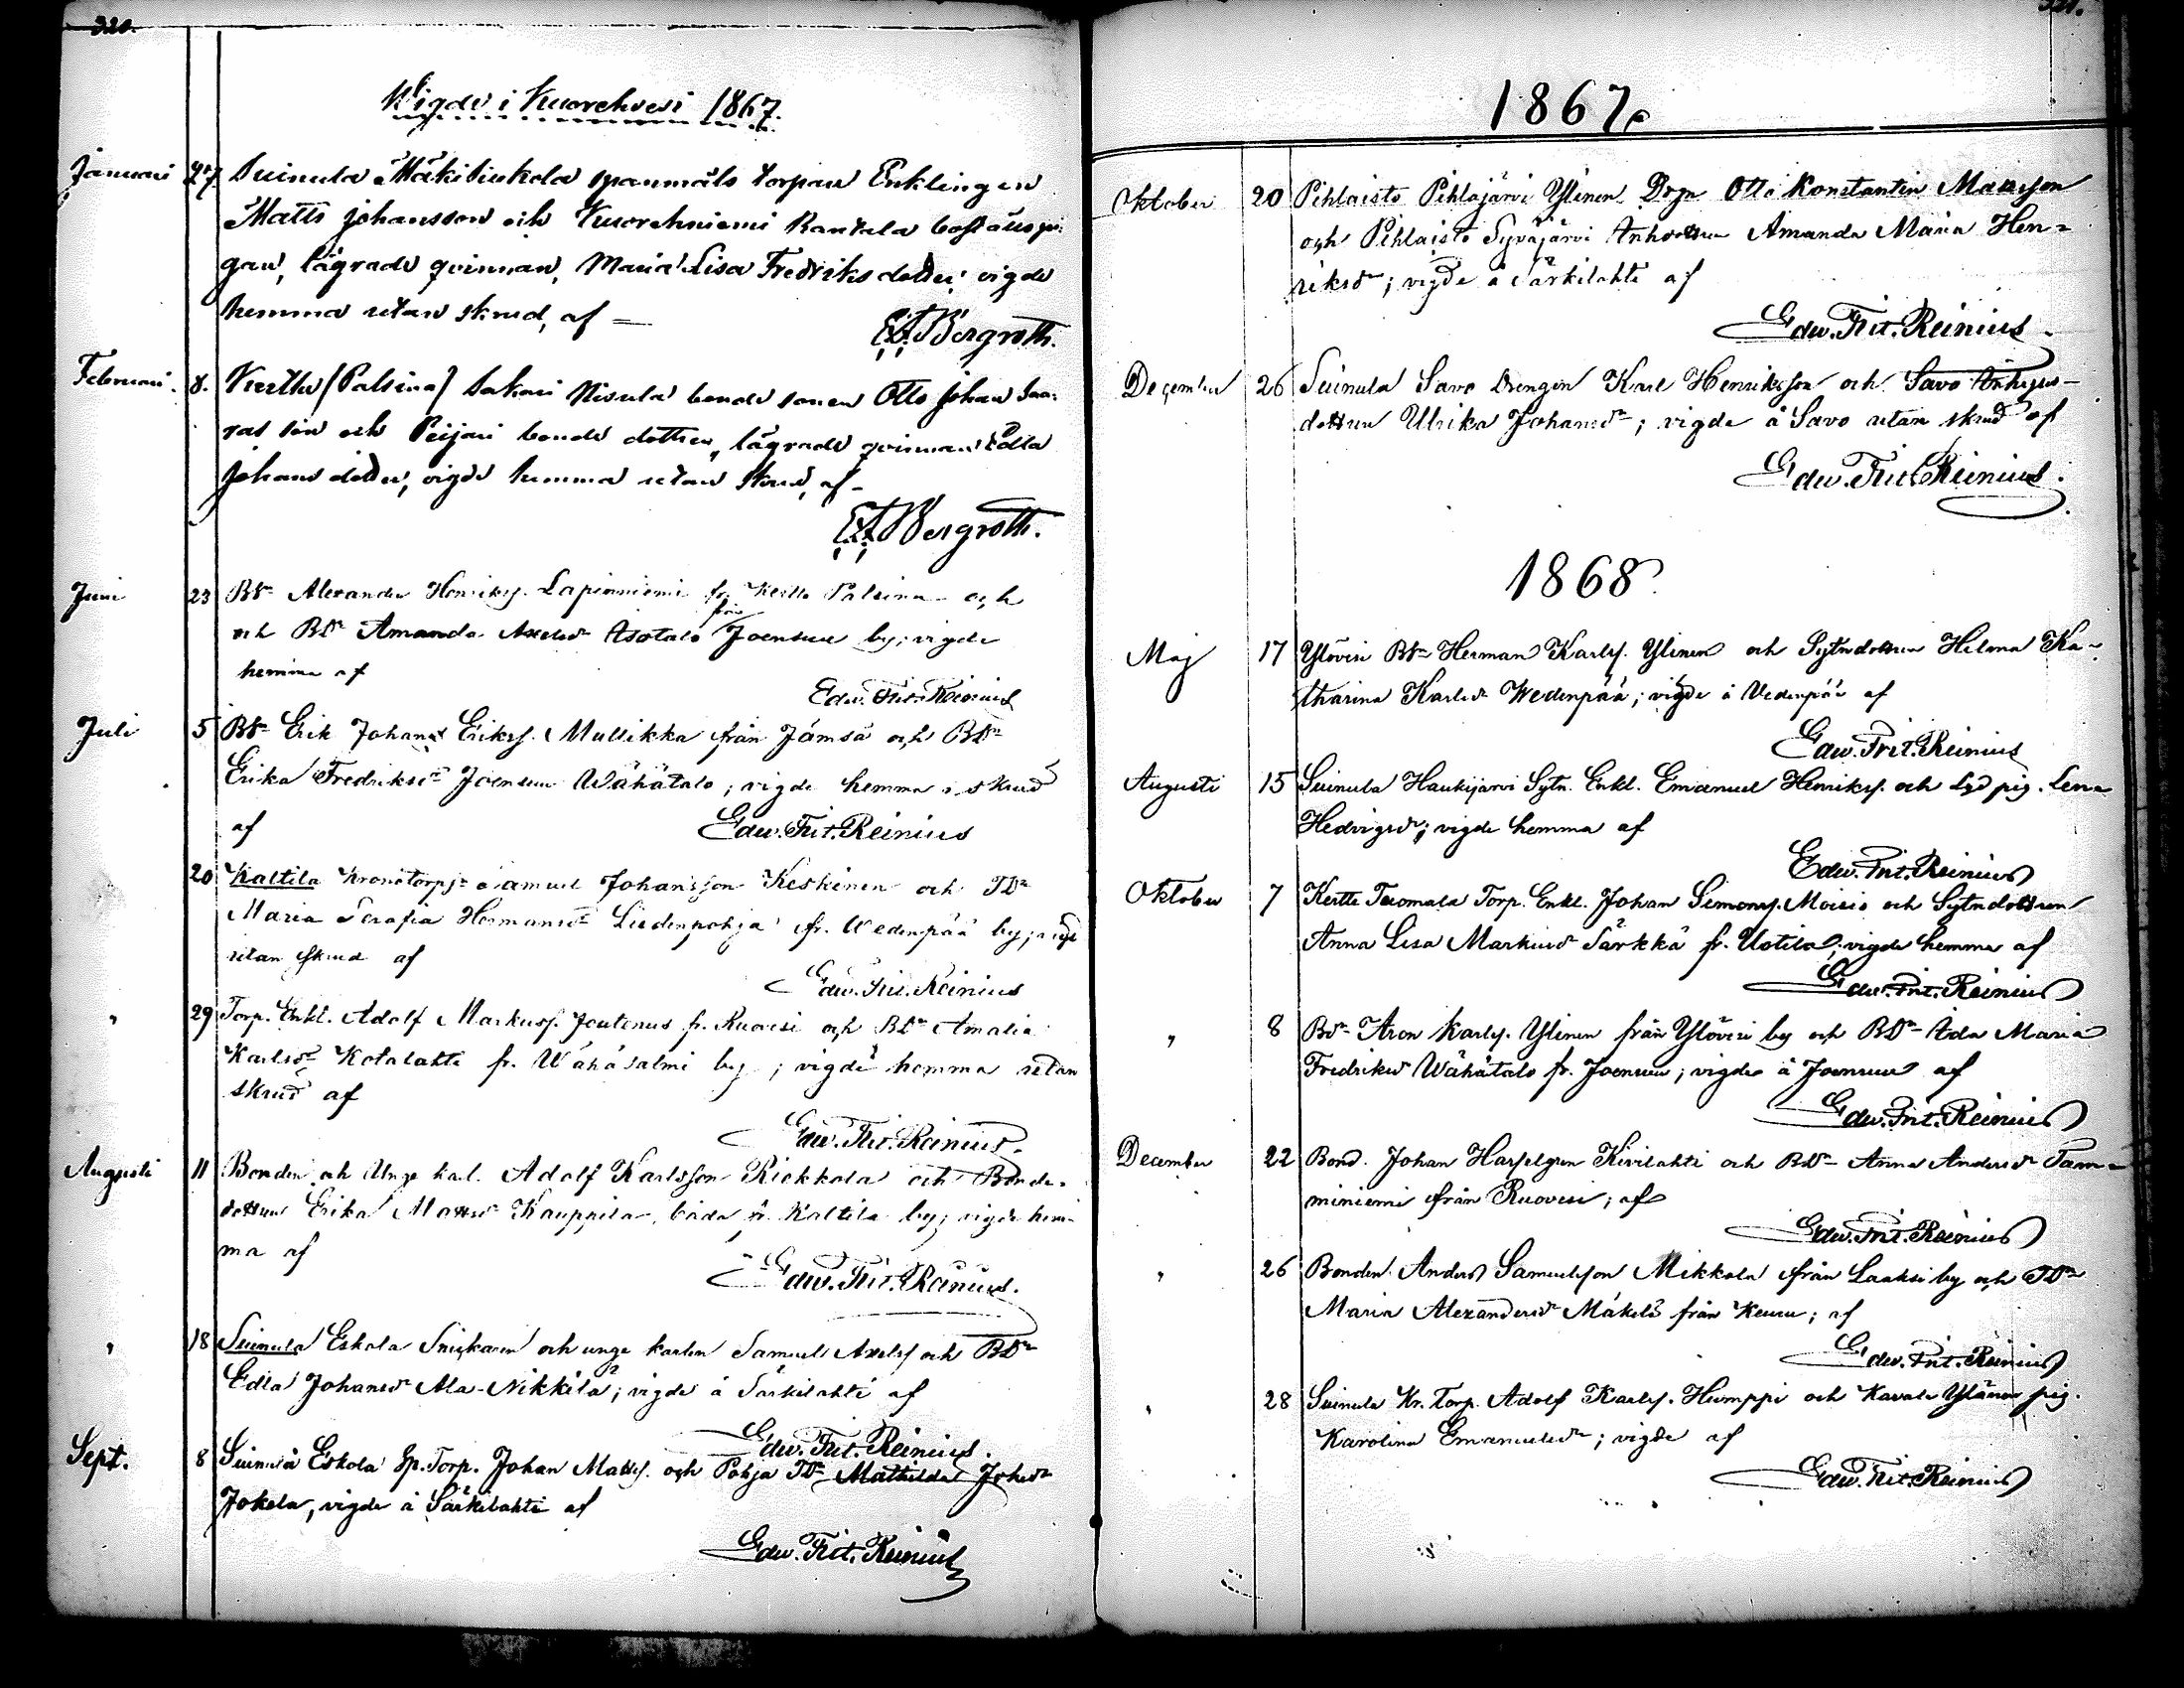 320.
Wigde i Kuorehvesi 1867.
Januari 27 Suinula Mäkisiukola spanmåls torparen Enklingen
Matts Johansson och Kuorehniemi Rantala
gan, lägrade qvinnan, Maria Lisa Fredriksdotter vigde
hemma utan skrud, af —
Bergroth.
Februari. 8. Kertte (Palsina) Sakari Nisula bonde sonen Otto Johan
son och Peijari bonde dottren, lägrade qvinnan Edla
Johans dotter, vigde hemma utan skrud, af —
Bergroth.
Juni 23 BSn Alexander Henriks. Lapinniemi fr. Kertte Palsina och
och BDr Amanda Axelsdr Asotalo från Joensuu by; vigde
hemma af
Edw. Frit. Reinius
Juli 5 BSn Erik Johan Eriks. Mullikka från Jämsä och BDr
Erika Fredriksdr Joensuu Wähätalo; vigde hemma u. skrud
af
Edw. Frit. Reinius
20 Kaltila Kronotorps Samuel Johansson Keskinen och TDr
Maria Serafia Hermansdr Liedenpohja fr. Wedenpää by; vigde
utan skrud af
Edw. Frit. Reinius
" 29 Torp. Enkl. Adolf Markuss. Joutenus fr. Ruovesi och BDr Amalia
Karlsdr Kotalahti fr. Wähäsalmi by; vigde hemma utan
skrud af
Edw. Frit. Reinius.
Augusti 11 Bonden och Unge karl. Adolf Karlsson Riekkola och Bonde-
dottren Erika Mattsdr Kauppila, båda fr. Kaltila by; vigde hem-
ma af
Edw. Frit. Reinius.
" 18 Suinula Eskola Snickaren och unge karlen Samuel Axelss och BDr
Edla Johansdr Ala-Nikkilä; vigde å Särkilahti af
Edw. Frit. Reinius.
Sept. 8 Suinula Eskola Sp. Torp. Johan Matts. och Pohja TDr Mathilda Johsdr
Jokela, vigde å Särkilahti af
Edw. Frit. Reinius
321.
1867.
Oktober 20 Pihlaisto Pihlajärvi Ylinen Drgn Otto Konstantin Mattsson
och Pihlaisto Syväjärvi Amanda Maria Hen-
riksdr; vigde å Särkilahti af
Edw. Frit. Reinius.
December 26 Suinula Savo Drengen Karl Henriksson och Savo
dottren Ulrika Johansdr; vigde å Savo utan skrud af
Edw. Frit. Reinius.
1868
Maj 17 Ylöveri BSn Herman Karls. Ylinen och Sytndottren Helena Ka-
tharina Karlsdr Wedenpää; vigde å Vedenpää af
Edw. Frit. Reinius
Augusti 15 Suinula Haukijärvi Sytn. Enkl. Emanuel Henriks. och pig. Lena
Hedvigsdr; vigde hemma af
Edw. Frit. Reinius
Oktober 7 Kertte Tuomala Torp. Enkl. Johan Simons. Moisio och Sytndottren
Anna Lisa Markusdr Särkkä fr. Uotila; vigde hemma af
Edw. Frit. Reinius
" 8 BSn Aron Karls. Ylinen från Ylöveri by och BDr Ida Maria
Fredriksdr Wähätalo fr. Joensuu; vigde å Joensuu af
Edw. Frit. Reinius
December 22 Bond. Johan Hasselgren Kivilahti och BDr Anna Andersdr Tam-
miniemi från Ruovesi; af
Edw. Frit. Reinius
" 26 Bonden Anders Samuelsson Mikkola från Laaksi by och TDr
Maria Alexandersdr Mäkelä från Keuru; af
Edw. Frit. Reinius
" 28 Suinula Kr. Torp. Adolf Karls. Humppi och Kavala Ylänen pig.
Karolina Emanuelsdr; vigde af
Edw. Frit. Reinius